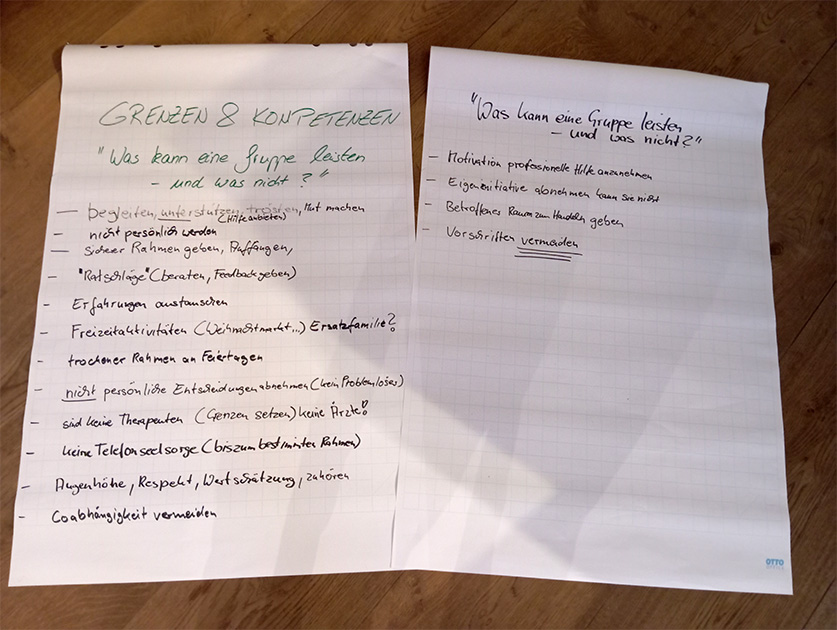 GRENZEN & KOMPETENZEN
"Was kann eine Gruppe leisten
- und was nicht?"
- begleiten, unterstützen, trösten, Mut machen
(Hilfe anbieten)
- nicht persönlich werden
- sicherer Rahmen geben, Auffangen,
- "Ratschläge" (beraten, Feedback geben)
- Erfahrungen austauschen
- Freizeitaktivitäten (Weihnachtmarkt...) Ersatzfamilie?!
- trockener Rahmen an Feiertagen
- nicht persönliche Entscheidungen abnehmen (kein Problemlöser)
- sind keine Therapeuten (Grenzen setzen) keine Ärzte!
- keine Telefonseelsorge (bis zum bestimmten Rahmen)
- Augenhöhe, Respekt, Wertschätzung, zuhören
- Coabhängigkeit vermeiden
"Was kann eine Gruppe leisten
- und was nicht?"
- Motivation professionelle Hilfe anzunehmen
- Eigeninitiative abnehmen kann sie nicht
- Betroffenen Raum zum Handeln geben
- Vorschriften vermeiden
OTTO